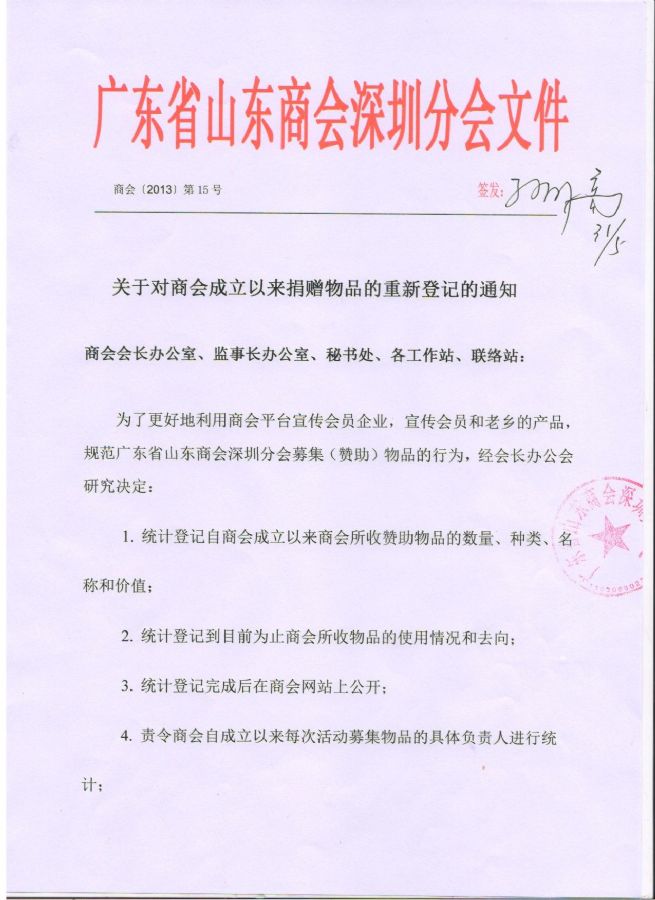 广东省山东商会深圳分会文件
商会〔2013〕第 15 号
签发:
31/5
关于对商会成立以来捐赠物品的重新登记的通知
商会会长办公室、监事长办公室、秘书处、各工作站、联络站：
为了更好地利用商会平台宣传会员企业，宣传会员和老乡的产品，
规范广东省山东商会深圳分会募集（赞助）物品的行为，经会长办公会
研究决定：
广东省山东商会深圳
1. 统计登记自商会成立以来商会所收赞助物品的数量、种类、名
称和价值；
2. 统计登记到目前为止商会所收物品的使用情况和去向；
3. 统计登记完成后在商会网站上公开；
4. 责令商会自成立以来每次活动募集物品的具体负责人进行统
计；